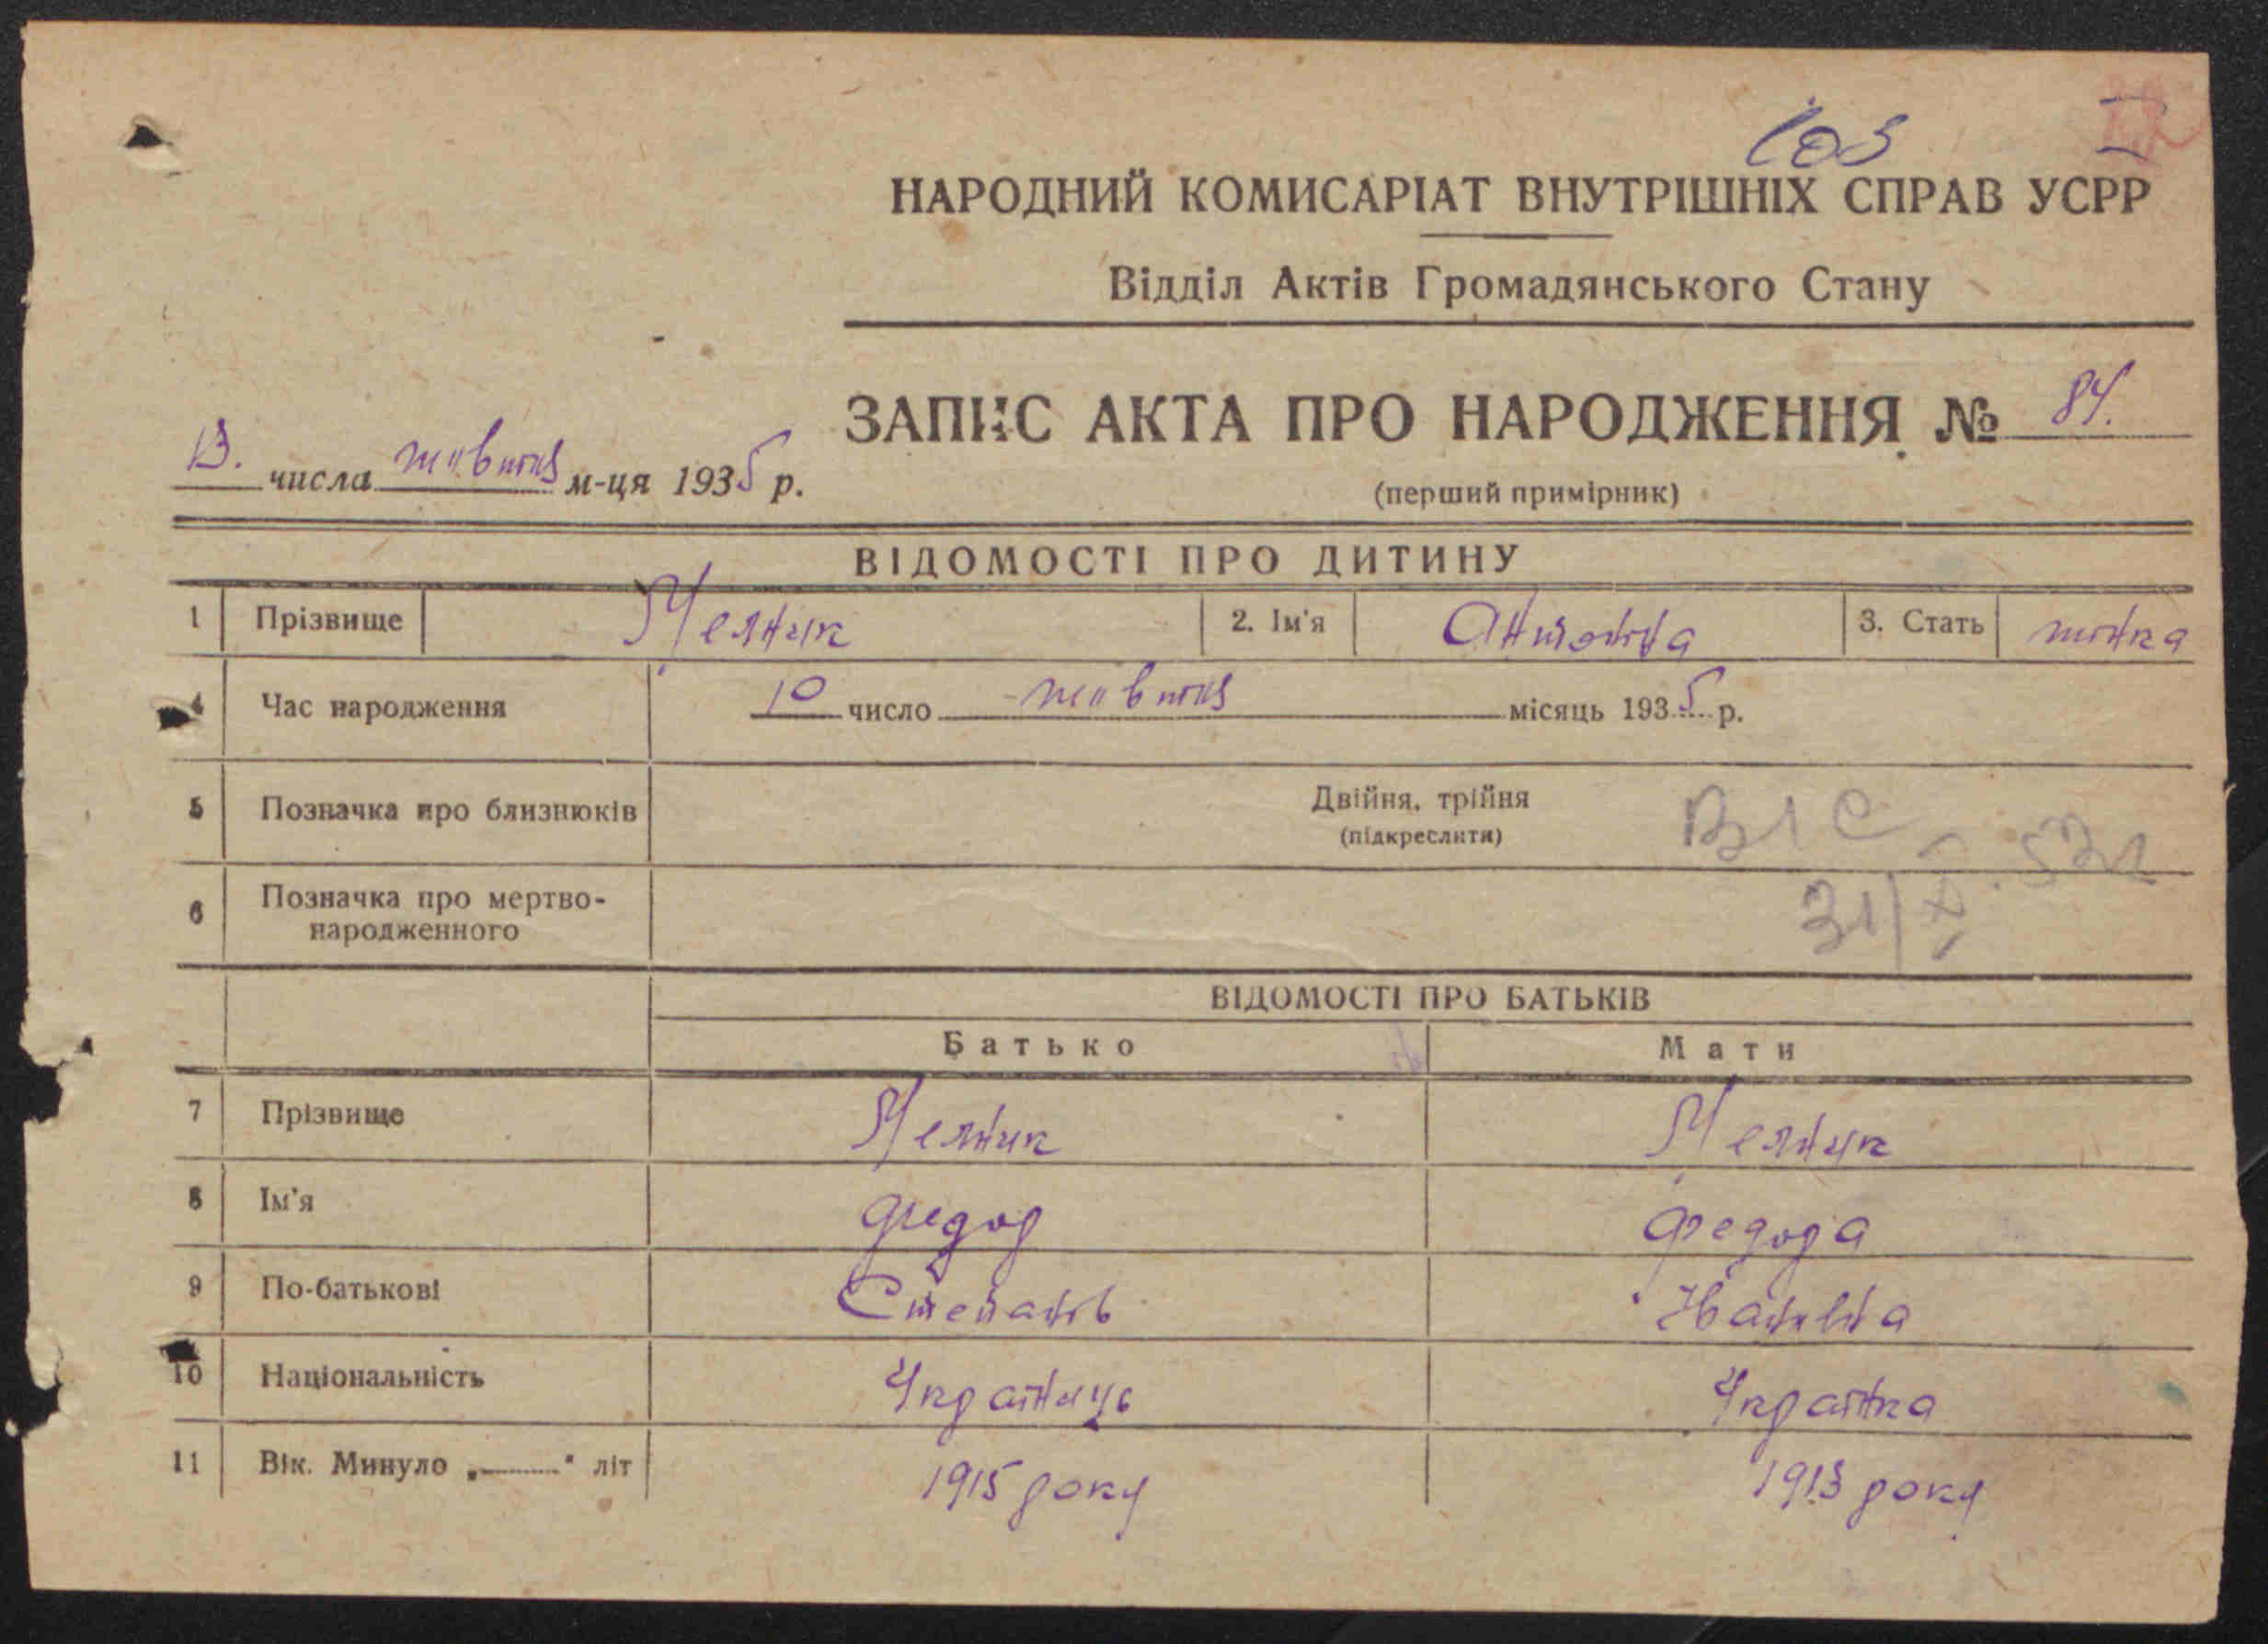 103
НАРОДНИЙ КОМИСАРІАТ ВНУТРІШНІХ СПРАВ УСРР
Відділ Актів Громадянського Стану
ЗАПИС АКТА ПРО НАРОДЖЕННЯ № 84.
13. числа жовтня м-ця 1935 р.
(перший примірник)
ВІДОМОСТІ ПРО ДИТИНУ
1 Прізвище Мелник 2. Ім'я Антоніна 3. Стать жінка
4 Час народження 10 число жовтня місяць 1935 р.
5 Позначка про близнюків Двійня, трійня
(підкреслити)
6 Позначка про мертво-
народженного
31/X
ВІДОМОСТІ ПРО БАТЬКІВ
Батько Мати
7 Прізвище Мелник Мелник
8 Ім'я Федор Федора
9 По-батькові Степанів
10 Національність Українець Українка
11 Вік. Минуло „ — " літ 1915 року 1913 року